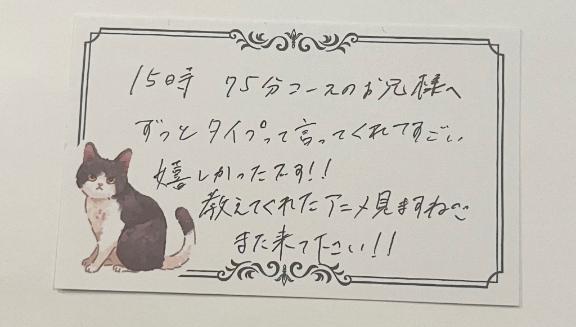 15時 75分コースのお兄様へ
ずっとタイプって言ってくれてすごい
嬉しかったです!!
教えてくれたアニメ見ますね
また来て下さい!!